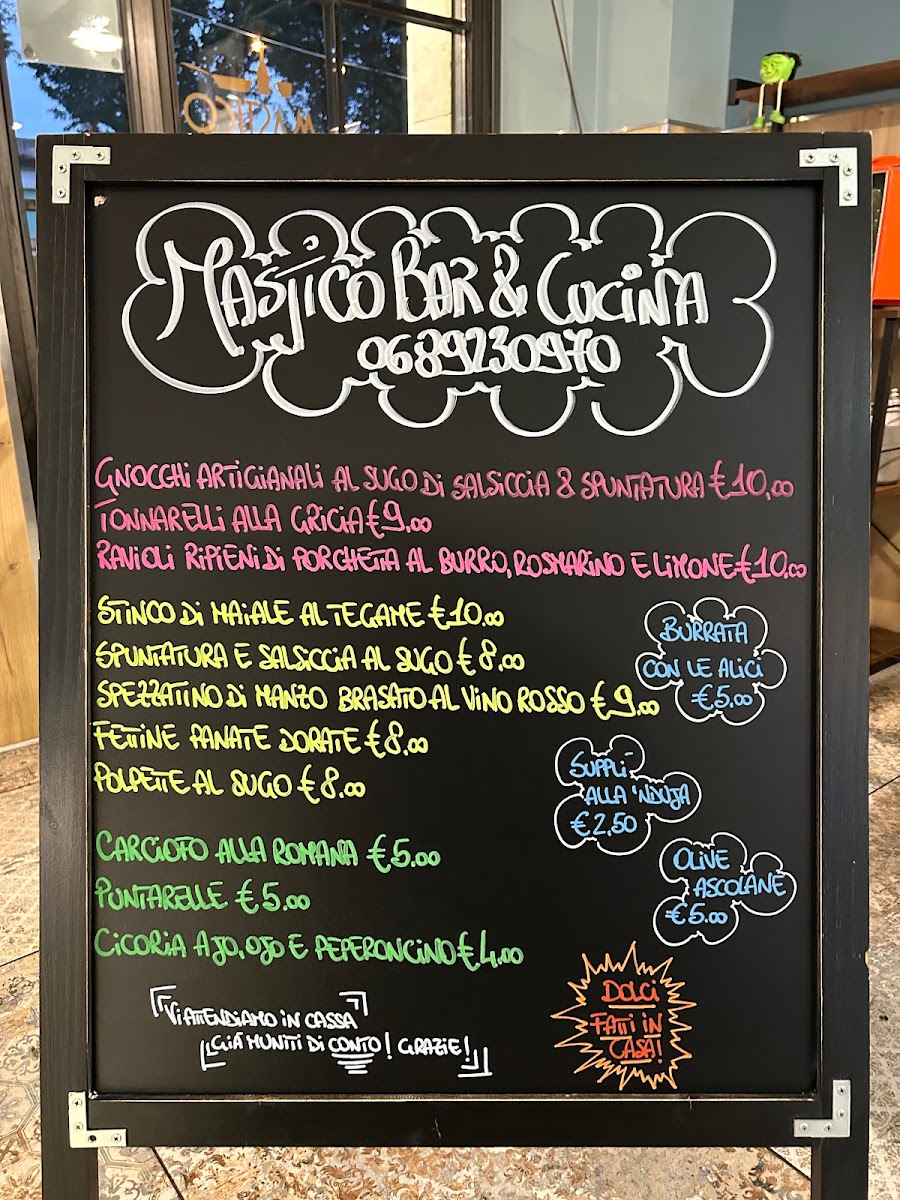 MASTICO
MASTICO BAR & CUCINA
0689230970
GNOCCHI ARTIGIANALI AL SUGO DI SALSICCIA & SPUNTATURA €10,00
TONNARELLI ALLA GRICIA €9,00
RAVIOLI RIPIENI DI PORCHETTA AL BURRO, ROSMARINO E LIMONE €10,00
STINCO DI MAIALE AL TEGAME €10,00
SPUNTATURA E SALSICCIA AL SUGO €8,00
SPEZZATINO DI MANZO BRASATO AL VINO ROSSO €9,00
FETTINE PANATE DORATE €8,00
POLPETTE AL SUGO €8,00
BURRATA
CON LE ALICI
€5,00
SUPPLI'
ALLA 'NDUJA
€2,50
OLIVE
ASCOLANE
€5,00
CARCIOFO ALLA ROMANA €5,00
PUNTARELLE €5,00
CICORIA AJO, OJO E PEPERONCINO €4,00
VI ATTENDIAMO IN CASSA
GIÀ MUNITI DI CONTO! GRAZIE!
DOLCI
FATTI IN
CASA!